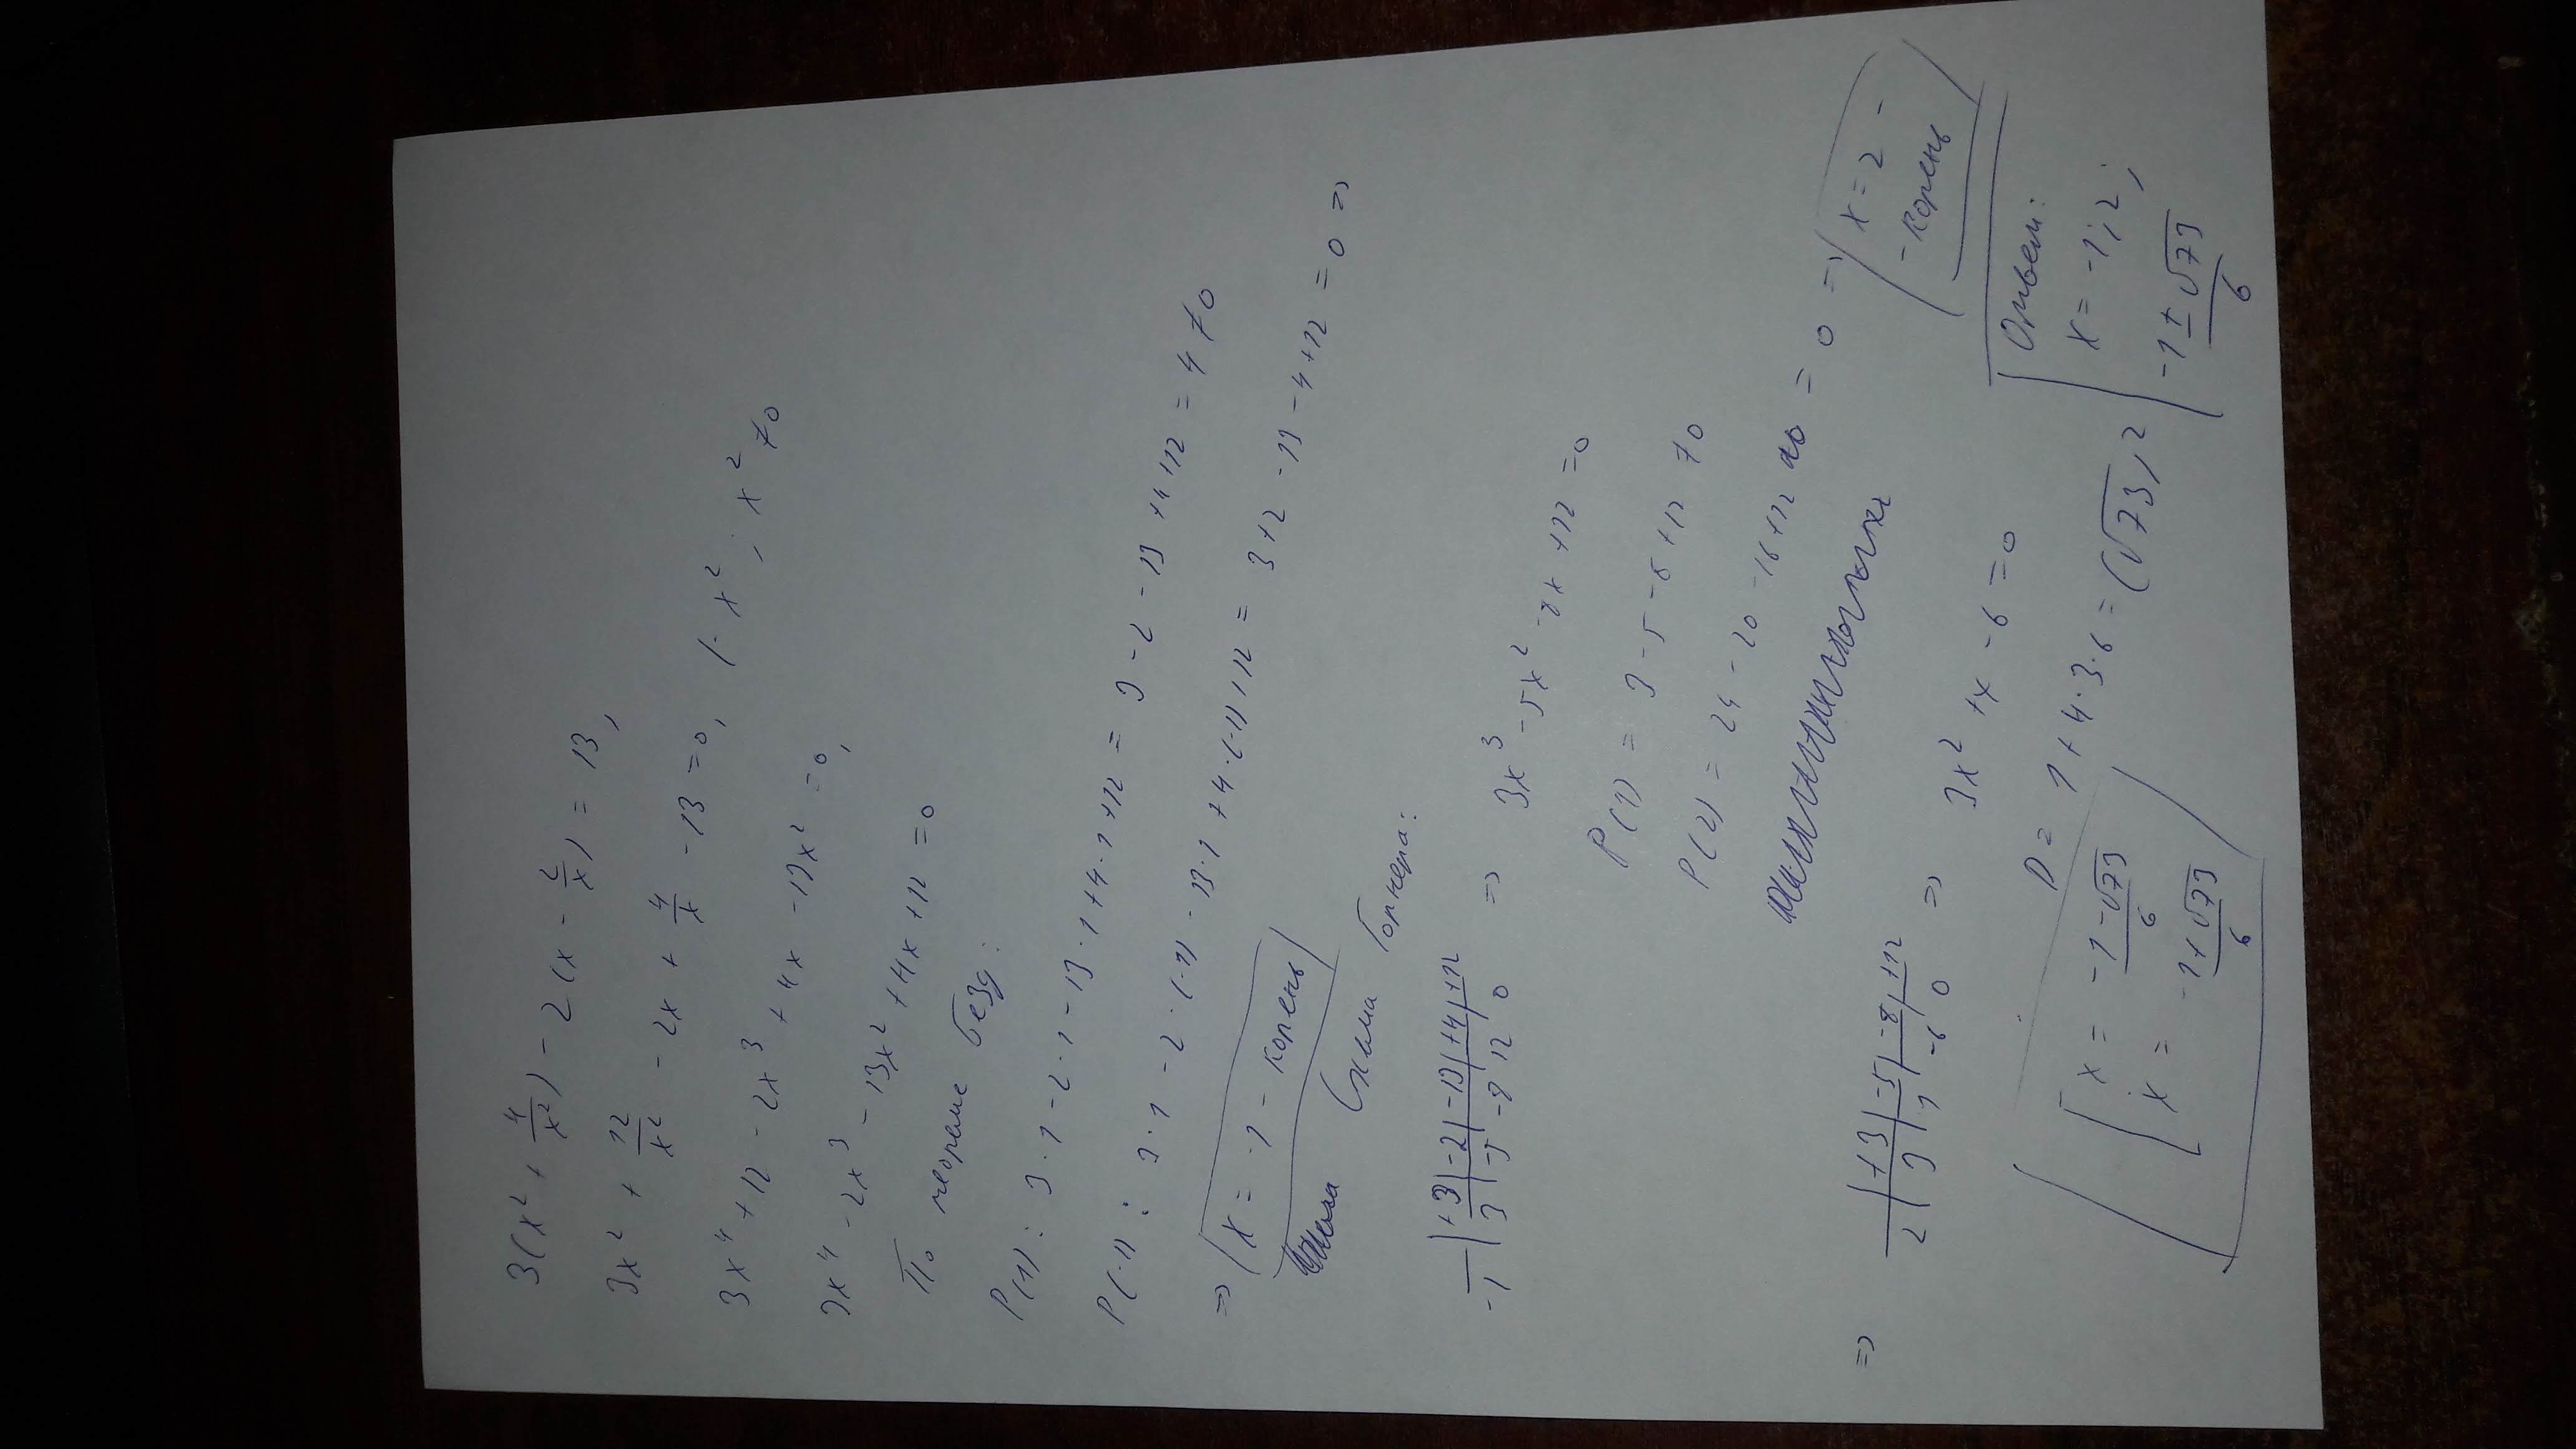 3(x² + 4/x²) - 2(x - 2/x) = 13,
3x² + 12/x² - 2x + 4/x - 13 = 0, | · x² ; x² ≠ 0
3x⁴ + 12 - 2x³ + 4x - 13x² = 0,
3x⁴ - 2x³ - 13x² + 4x + 12 = 0
По теореме Безу:
P(1): 3·1 - 2·1 - 13·1 + 4·1 + 12 = 3 - 2 - 13 + 4 + 12 = 4 ≠ 0
P(-1): 3·1 - 2·(-1) - 13·1 + 4·(-1) + 12 = 3 + 2 - 13 - 4 + 12 = 0 =>
=> x = -1 - корень
Схема Горнера:
| +3 | -2 | -13 | +4 | +12
-1 | 3 | -5 -8 12 0 => 3x³ - 5x² - 8x + 12 = 0
P(1) = 3 - 5 - 8 + 12 ≠ 0
P(2) = 24 - 20 - 16 + 12 = 0 => x = 2 -
- корень
=> | +3 | -5 | -8 | +12
2 | 3 | 1 -6 0 => 3x² + x - 6 = 0
D = 1 + 4·3·6 = (√73)²
x = -1-√73/6
x = -1+√73/6
Ответ:
x = -1; 2;
-1±√73/6